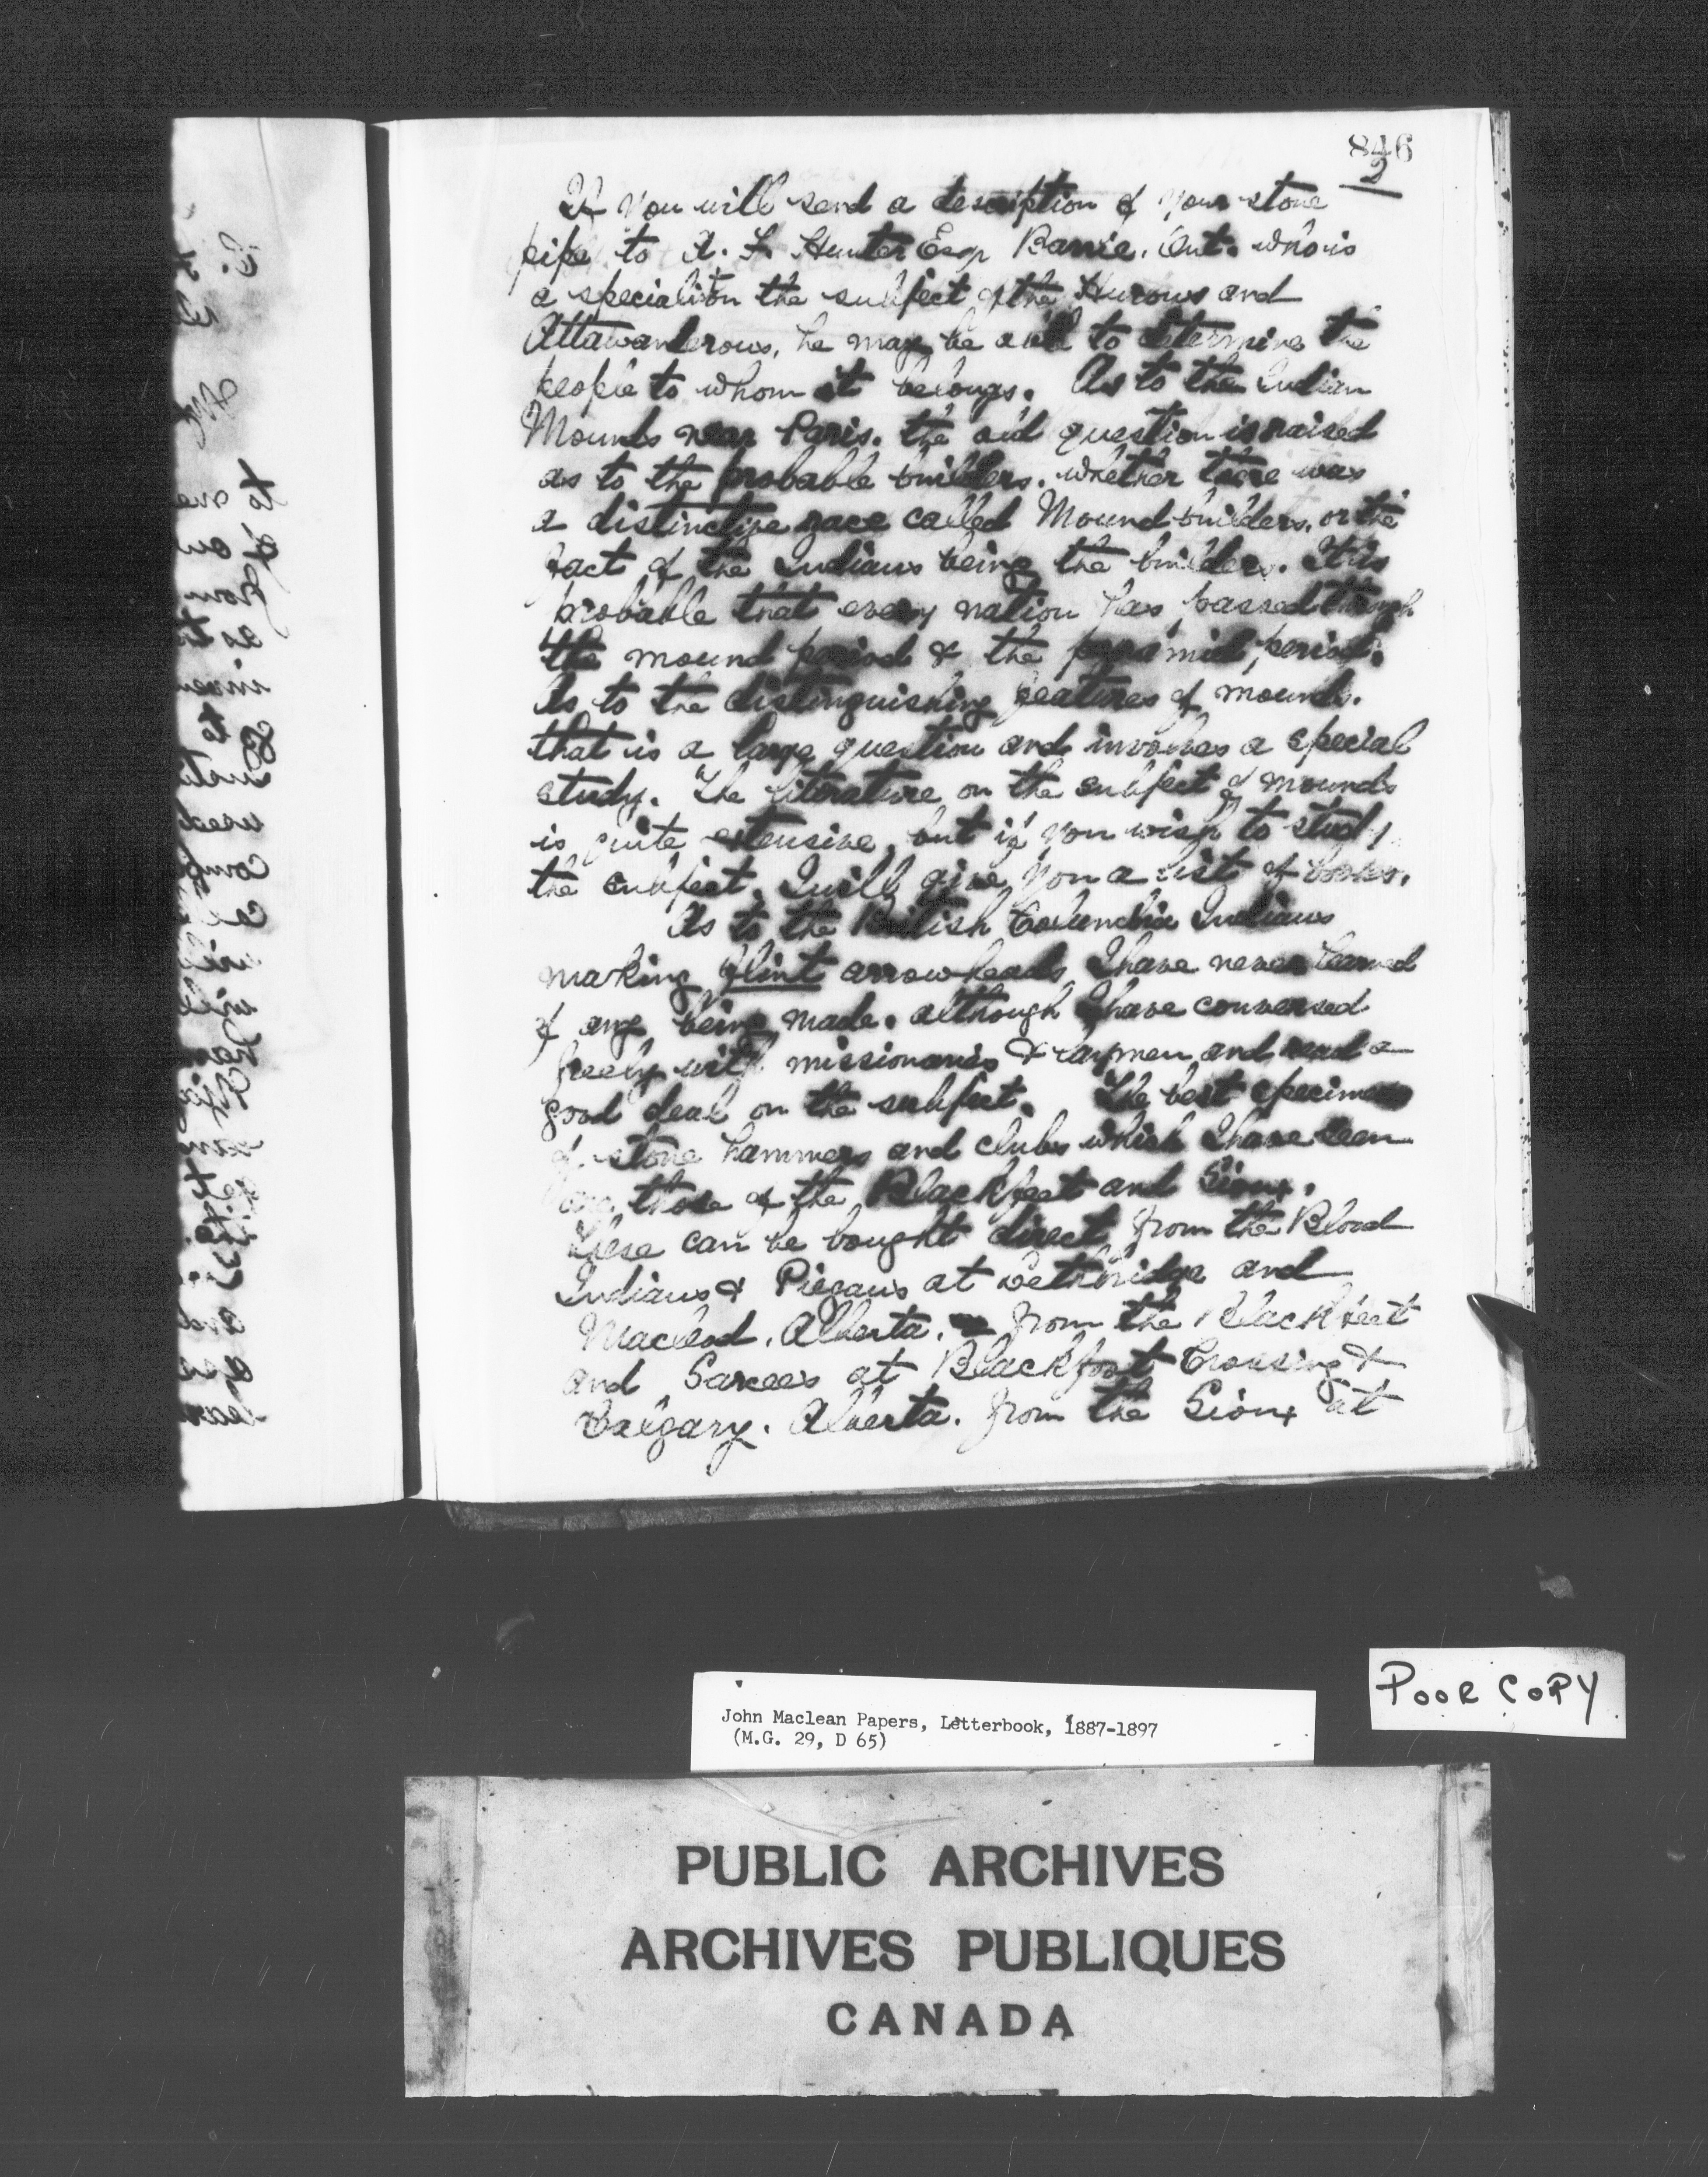 846
2
If you will send a description of your stone
pipe to A. F. Hunter Esqr Barrie, Ont. who is
a specialist on the subject of the Hurons and
Attawanderons, he may be able to determine the
people to whom it belongs. As to the Indian
Mounds near Paris. the old question is raised
as to the probable builders. whether there was
a distinctive race called Mound builders, or the
fact of the Indians being the builders. It is
probable that every nation has passed through
the mound period & the pyramid period.
As to the distinguishing features of mounds.
that is a large question and involves a special
study. The literature on the subject of mounds
is quite extensive, but if you wish to study
the subject, I will give you a list of books.
As to the British Columbia Indians
making flint arrowheads I have never learned
of any being made. although I have conversed
freely with missionaries & laymen and read a
good deal on the subject. The best specimens
of stone hammers and clubs which I have seen
are those of the Blackfeet and Sioux.
These can be bought direct from the Blood
Indians & Piegans at Lethbridge and
Macleod. Alberta. from the Blackfeet
and Sarcees at Blackfoot Crossing &
Calgary. Alberta. from the Sioux at
POOR COPY
John Maclean Papers, Letterbook, 1887-1897
(M.G. 29, D 65)
PUBLIC ARCHIVES
ARCHIVES PUBLIQUES
CANADA